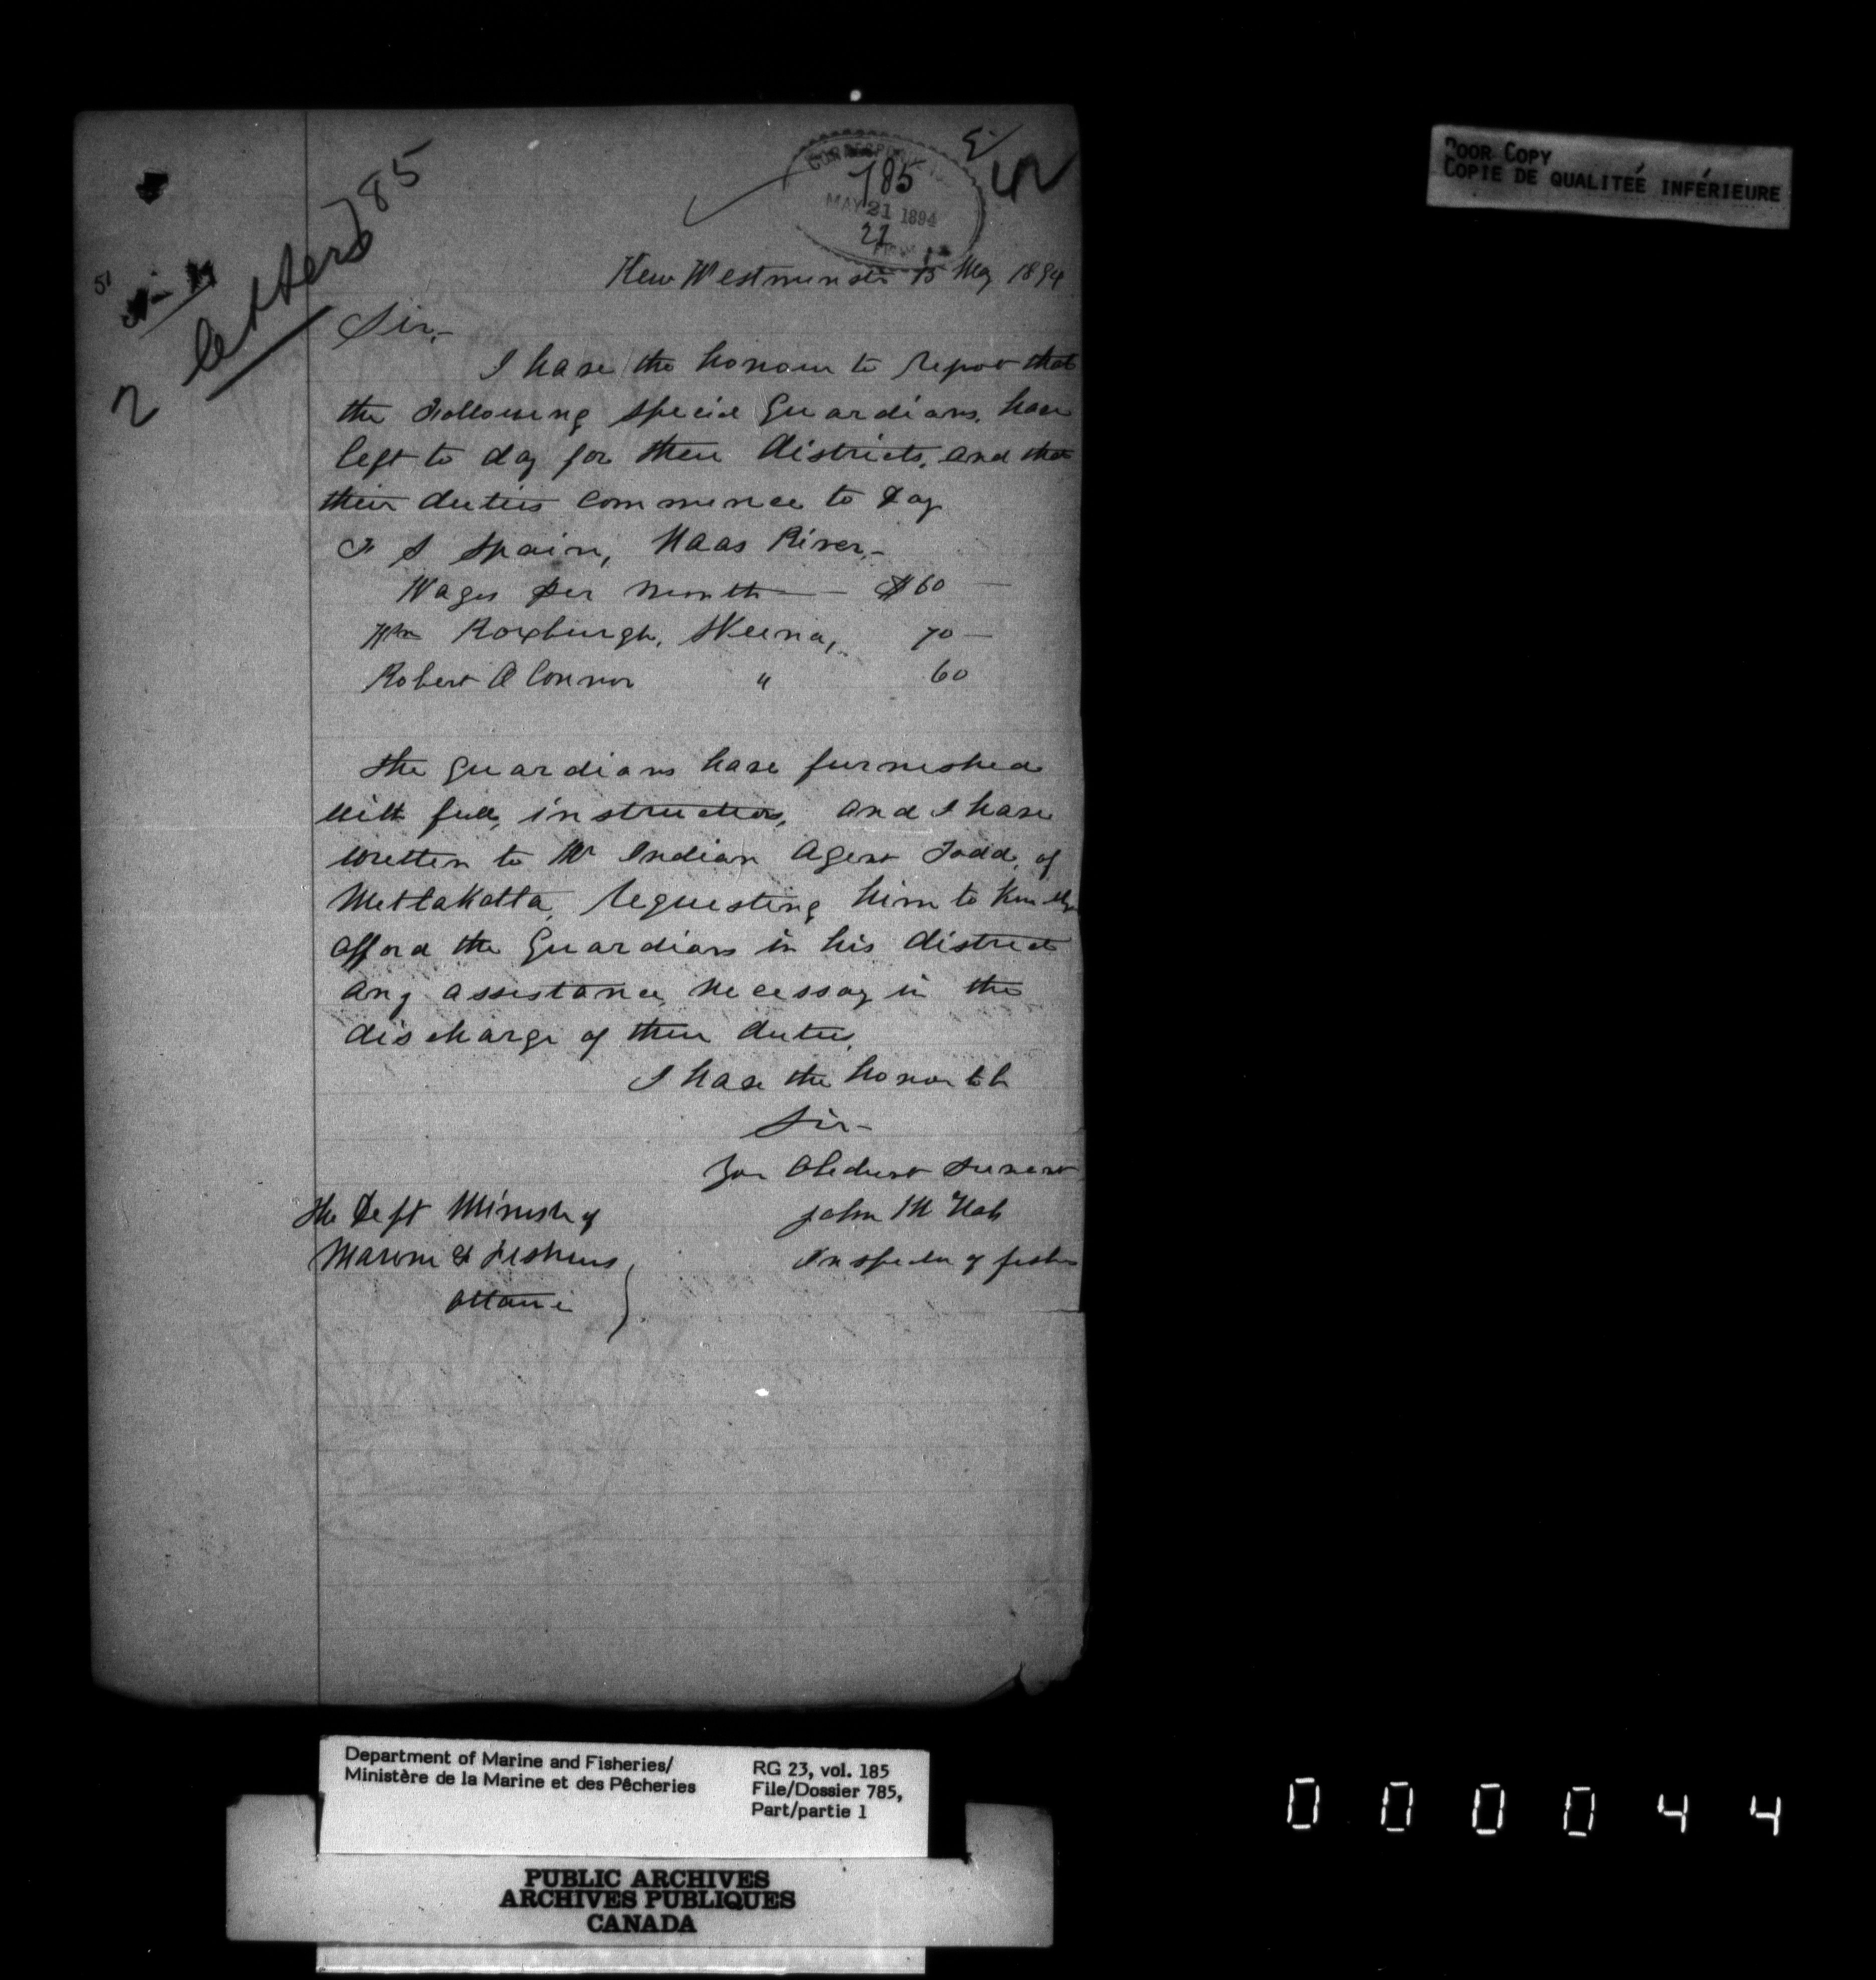 POOR COPY
COPIE DE QUALITEÉ INFÉRIEURE
785
42
785
MAY 21 1894
21
2 letters
51
New Westminster 15 May 1894
Sir,-
I have the honour to report that
the following special Guardians, have
left to day for their districts, and that
their duties commence to day
J S Spain, Naas River,-
Wages per month — $60 —
Wm Roxburgh, Skeena, 70 —
Robert O Connor " 60
The Guardians have furnished
with full, instructions, and I have
written to Mr Indian Agent Todd, of
Metlakatla, requesting him to kindly
afford the Guardians in his district
any assistance necessay in the
discharge of their duties.
I have the honor to be
Sir-
Your Obedient Servant
John McNab
Inspector of fisheries
The Dept Minister of
Marine & Fisheries
Ottawa
Department of Marine and Fisheries/
Ministère de la Marine et des Pêcheries
RG 23, vol. 185
File/Dossier 785,
Part/partie 1
PUBLIC ARCHIVES
ARCHIVES PUBLIQUES
CANADA
000044